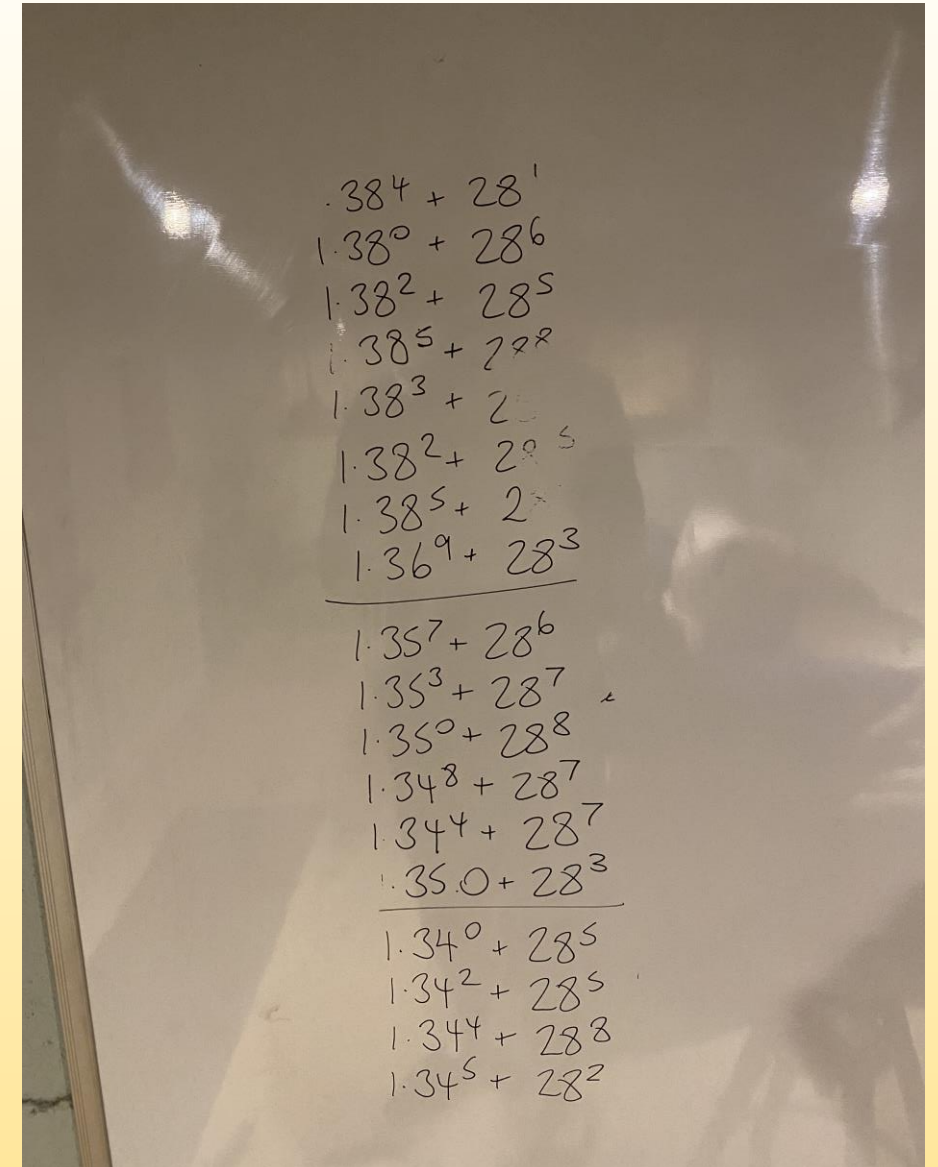 .38⁴ + 28¹
1.38⁰ + 28⁶
1.38² + 28⁵
1.38⁵ +
1.38³ +
1.38² +
1.38⁵ +
1.36⁹ + 28³
1.35⁷ + 28⁶
1.35³ + 28⁷
1.35⁰ + 28⁸
1.34⁸ + 28⁷
1.34⁴ + 28⁷
1.35.0 + 28³
1.34⁰ + 28⁵
1.34² + 28⁵
1.34⁴ + 28⁸
1.34⁵ + 28²